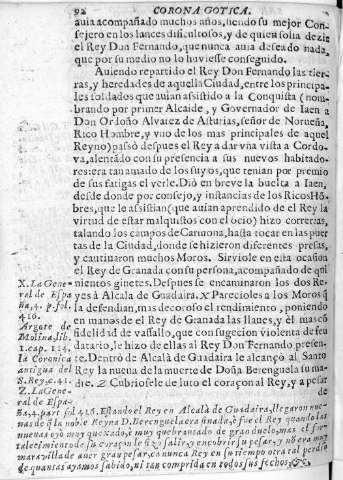 92 CORONA GOTICA.
auia acompañado muchos años, siendo su mejor Con-
sejero en los lances dificultosos, y de quien solia dezir
el Rey Don Fernando, que nunca auia deseado nada,
que por su medio no lo huviesse conseguido.
Auiendo repartido el Rey Don Fernando las tier-
ras, y heredades de aquella Ciudad, entre los principa-
les soldados que auian assistido a la Conquista (nom-
brando por primer Alcaide, y Governador de Iaen a
Don Ordoño Alvarez de Asturias, señor de Norueña,
Rico Hombre, y vno de los mas principales de aquel
Reyno) passò despues el Rey a dar vna vista a Cordo-
va, alentãdo con su presencia a sus nuevos habitado-
res: era tan amado de los suyos, que tenian por premio
de sus fatigas el verle. Diò en breve la buelta a Iaen,
desde donde por consejo, y instancias de los Ricos Hõ-
bres, que le assistian (que auian aprendido de el Rey la
virtud de estar malquistos con el ocio) hizo correrias,
talando los campos de Carmona, hasta tocar en las puer-
tas de la Ciudad, donde se hizieron diferentes presas,
y cautivaron muchos Moros. Sirviole en esta ocasion
el Rey de Granada con su persona, acompañado de qui-
nientos ginetes. Despues se encaminaron los dos Re-
yes à Alcala de Guadaira. X Parecioles a los Moros q̃
la defendian, mas decoroso el rendimiento, poniendo
en manos de el Rey de Granada las llaues, y el mascò
fidelidad de vassallo, que con sugecion violenta de feu
datario, le hizo de ellas al Rey Don Fernando presen-
te. Dentro de Alcalà de Guadaira le alcançò al Santo
Rey la nueua de la muerte de Doña Berenguela su ma-
dre. Z Cubriosele de luto el coraçon al Rey, y a pesar
de
X. La Gene-
ral de Espa
ña, 4. p. fol.
416.
Argote de
Molina, lib.
1. cap. 114.
la Coronica
antigua del
S. Rey, c. 41.
Z. La Gene-
ral de Espa-
ña, 4. part fol 416. Estando el Rey en Alcalà de Guadaira, llegaron nue-
uas de q̃ la noble Reyna D. Berenguela era finada, è fue el Rey quando las
nueuas oyò muy quexado, è muy quebrantado de gran duelo; mas el for-
talecimiento de su coraçon le fizo salir, y encobrir su pesar, y no era muy
marauilla de auer gran pesar, ca nunca Rey en su tiempo otra tal perdiò
de quantas ayamos sabido, ni tan comprida en todos sus fechos, &c.